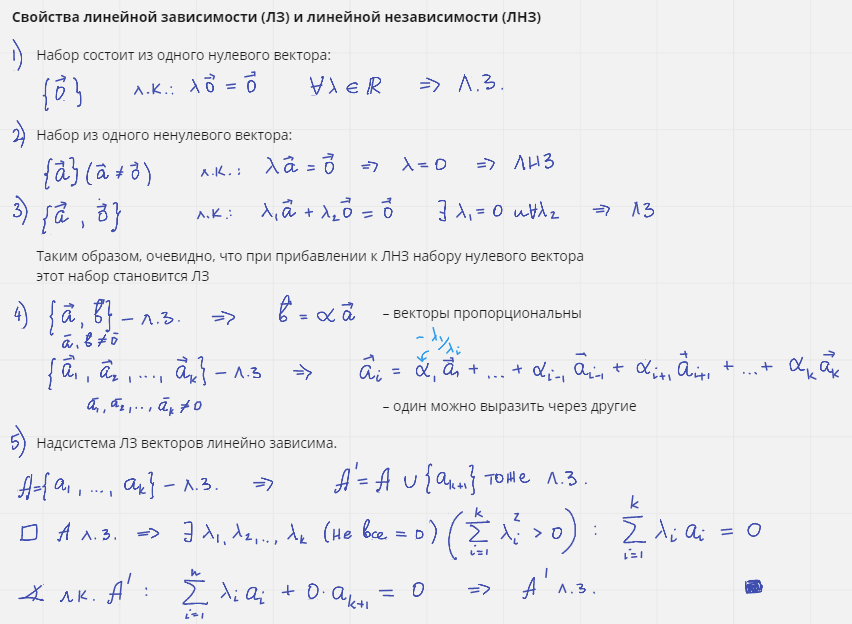 Свойства линейной зависимости (ЛЗ) и линейной независимости (ЛНЗ)
1) Набор состоит из одного нулевого вектора:
{0⃗} л.к.: λ0⃗ = 0⃗ ∀λ ∈ ℝ ⇒ Л.З.
2) Набор из одного ненулевого вектора:
{a⃗} (a⃗ ≠ 0⃗) л.к.: λa⃗ = 0⃗ ⇒ λ = 0 ⇒ ЛНЗ
3) {a⃗, 0⃗} л.к.: λ₁a⃗ + λ₂0⃗ = 0⃗ ∃ λ₁ = 0 и ∀λ₂ ⇒ ЛЗ
Таким образом, очевидно, что при прибавлении к ЛНЗ набору нулевого вектора
этот набор становится ЛЗ
4) {a⃗, b⃗} – л.з. ⇒ b⃗ = αa⃗ – векторы пропорциональны
a̅, b ≠ 0̅
– λ₁/λᵢ
{a⃗₁, a⃗₂, ..., a⃗ₖ} – л.з ⇒ a⃗ᵢ = α₁a⃗₁ + ... + αᵢ₋₁a⃗ᵢ₋₁ + αᵢ₊₁a⃗ᵢ₊₁ + ... + αₖa⃗ₖ
a̅₁, a̅₂, .., a̅ₖ ≠ 0 – один можно выразить через другие
5) Надсистема ЛЗ векторов линейно зависима.
A={a₁, ..., aₖ} – л.з. ⇒ A' = A ∪ {aₖ₊₁} тоже л.з.
□ A л.з. ⇒ ∃ λ₁, λ₂, .., λₖ (не все = 0) (∑ᵢ₌₁ᵏ λᵢ² > 0) : ∑ᵢ₌₁ᵏ λᵢaᵢ = 0
∡ л.к. A' : ∑ᵢ₌₁ⁿ λᵢaᵢ + 0·aₖ₊₁ = 0 ⇒ A' л.з. ■